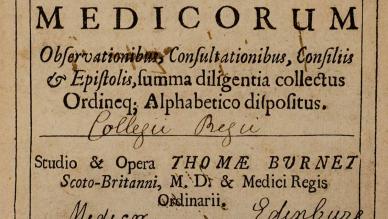 MEDICORUM
Observationibus, Consultationibus, Consiliis
& Epistolis, summa diligentia collectus
Ordineq; Alphabetico dispositus.
Collegii Regii
Studio & Opera THOMÆ BVRNET
Scoto-Britanni, M. D. & Medici Regis
Ordinarii.
Medicor Edinburg